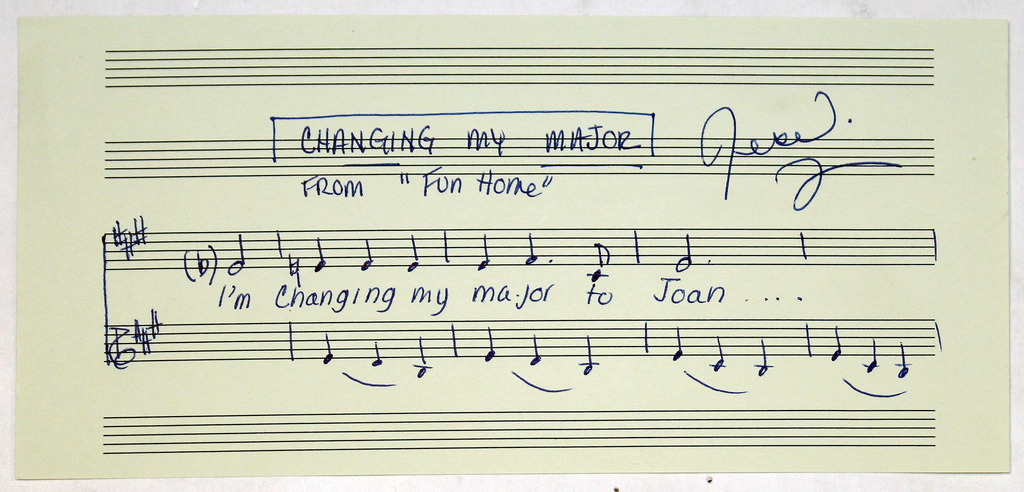 CHANGING MY MAJOR
FROM "FUN HOME"
(b)
I'm Changing my major to Joan ....